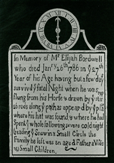 In Memory of Mr Elijah Bardwell
who died Janry 26th 1786 in ye 27th Year
of his Age having but a few days
survived ye fatal Night when he was
flung from his Horse & drawn by ye stir
rup 26 rods along ye path as appeared by ye place
where his hat was found & where he had
Spent ye whole following severe cold night
treading ye Snow in a Small Circle
the Family he left was an aged Father a Wife
Small Children